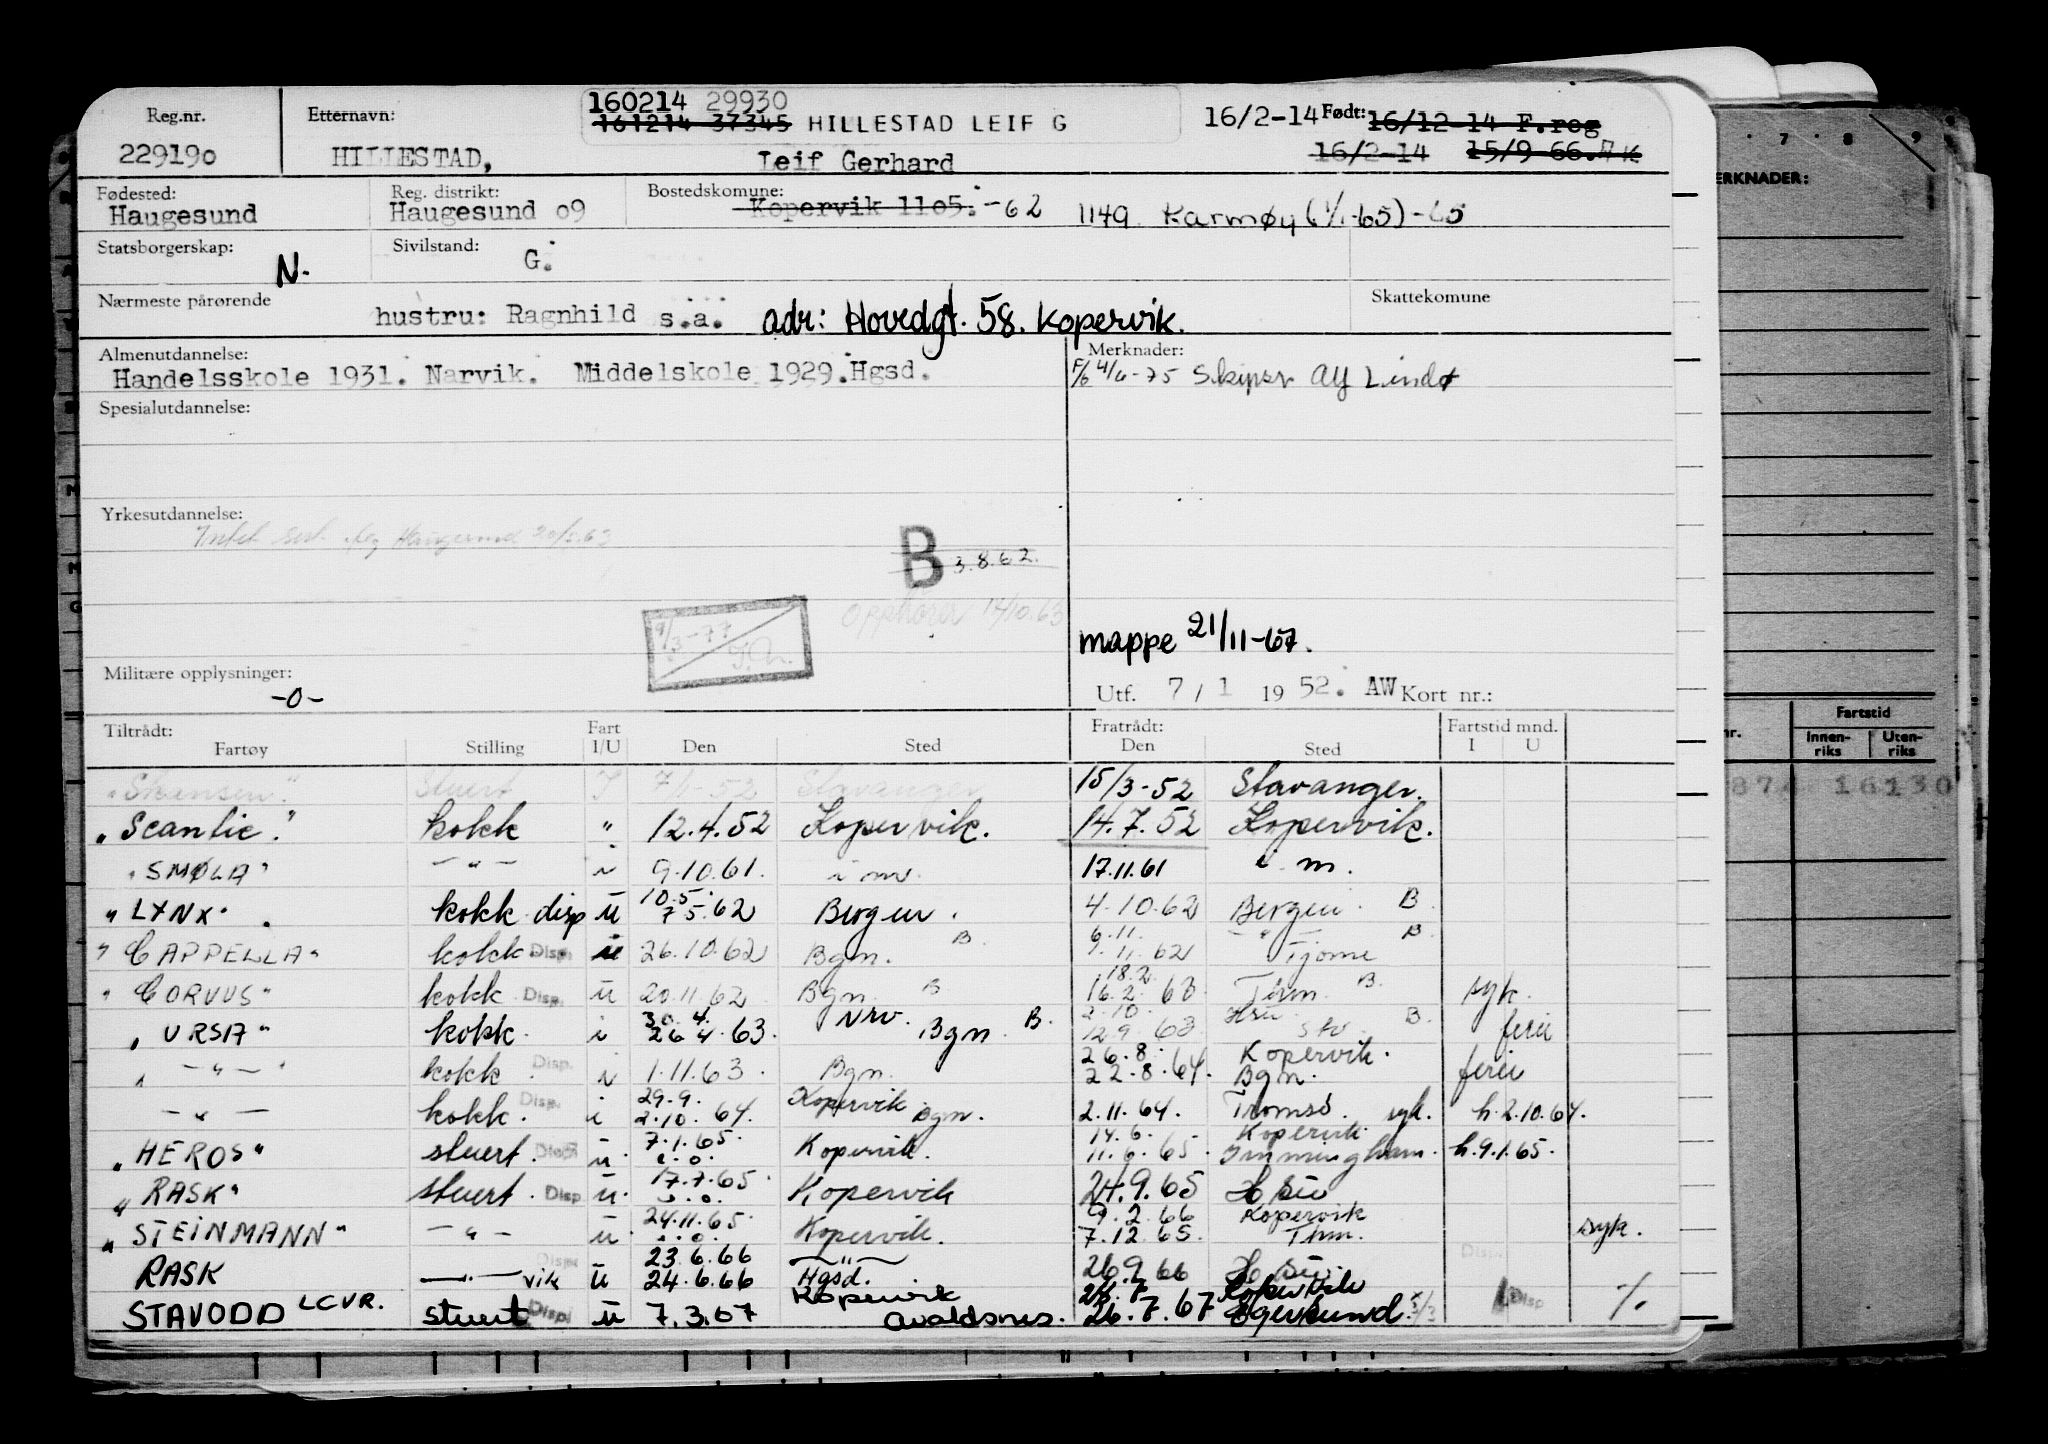 Reg.nr. Etternavn: 160214 29930
161214 37345 HILLESTAD LEIF G 16/2-14 Født: 16/12-14 F.rog
229190 HILLESTAD, Leif Gerhard 16/2-14 15/9-66.
Fødested: Reg. distrikt: Bostedskomune:
Haugesund Haugesund 09 Kopervik 1105.-62 1149 Karmøy (1/1-65)-65
Statsborgerskap: N. Sivilstand: G.
Nærmeste pårørende Skattekomune
hustru: Ragnhild s.a. adr: Hovedgt. 58. Kopervik.
Almenutdannelse: Merknader:
Handelsskole 1931. Narvik. Middelskole 1929. Hgsd. 4/6-75 Skipsr
Spesialutdannelse:
Yrkesutdannelse:
Haugesund
B 3.8.62.
Opphører 14/10.63
9/3-77
mappe 21/11-67.
Militære opplysninger: -0-
Utf. 7/1 1952. AW Kort nr.:
Tiltrådt: Fart Fratrådt: Fartstid mnd.
Fartøy Stilling I/U Den Sted Den Sted I U
"Skansen" Stuert I 7/1-52 Stavanger 15/3-52 Stavanger.
"Scantic." kokk " 12.4.52 Kopervik. 14.7.52 Kopervik.
"SMØLA" -"- i 9.10.61. i m. 17.11.61 i m.
"LYNX" kokk disp u 10.5. 7 5.62 Bergen. 4.10.62 Bergen. B
"CAPPELLA" kokk Disp. u 26.10.62 Bgn. B. 6.11. 7.11.62 -"- Tjøme B.
"CORVUS" kokk Disp. u 20.11.62 Bgn. B 18.2. 16.2.63 Thm. B. syk.
"URSA" kokk. i 30.4. 26 4.63. Nrv. Bgn. B. 2.10. 12.9.63 Stv. B. ferie
-"- kokk Disp. i 1.11.63. Bgn. 26.8. 22.8.64. Kopervik. Bgn. ferie
-"- kokk. Disp. i 29.9. 2.10.64. Kopervik Bgn. 2.11.64. Tromsø. syk. h.2.10.64.
"HEROS" stuert. Disp u. 7.1.65. Kopervik. 14.6. 11.6.65. Kopervik. Immingham. h.9.1.65.
"RASK" stuert. Disp u. 17.7.65. Kopervik 24.9.65
"STEINMANN" -"- u. 24.11.65. Kopervik. 9.2.66 7.12.65. Kopervik Thm. syk.
RASK -"- vik Disp u 23.6.66 24.6.66 -"- Hgsd. 26.9.66 Disp
STAVODD LCVR. stuert Disp. u 7.3.67 Kopervik Avaldsnes. 26.7.67 Kopervik Egersund. Disp %
7 8 9
ERKNADER:
nr. Fartstid
Innen-riks Uten-riks
874 16130